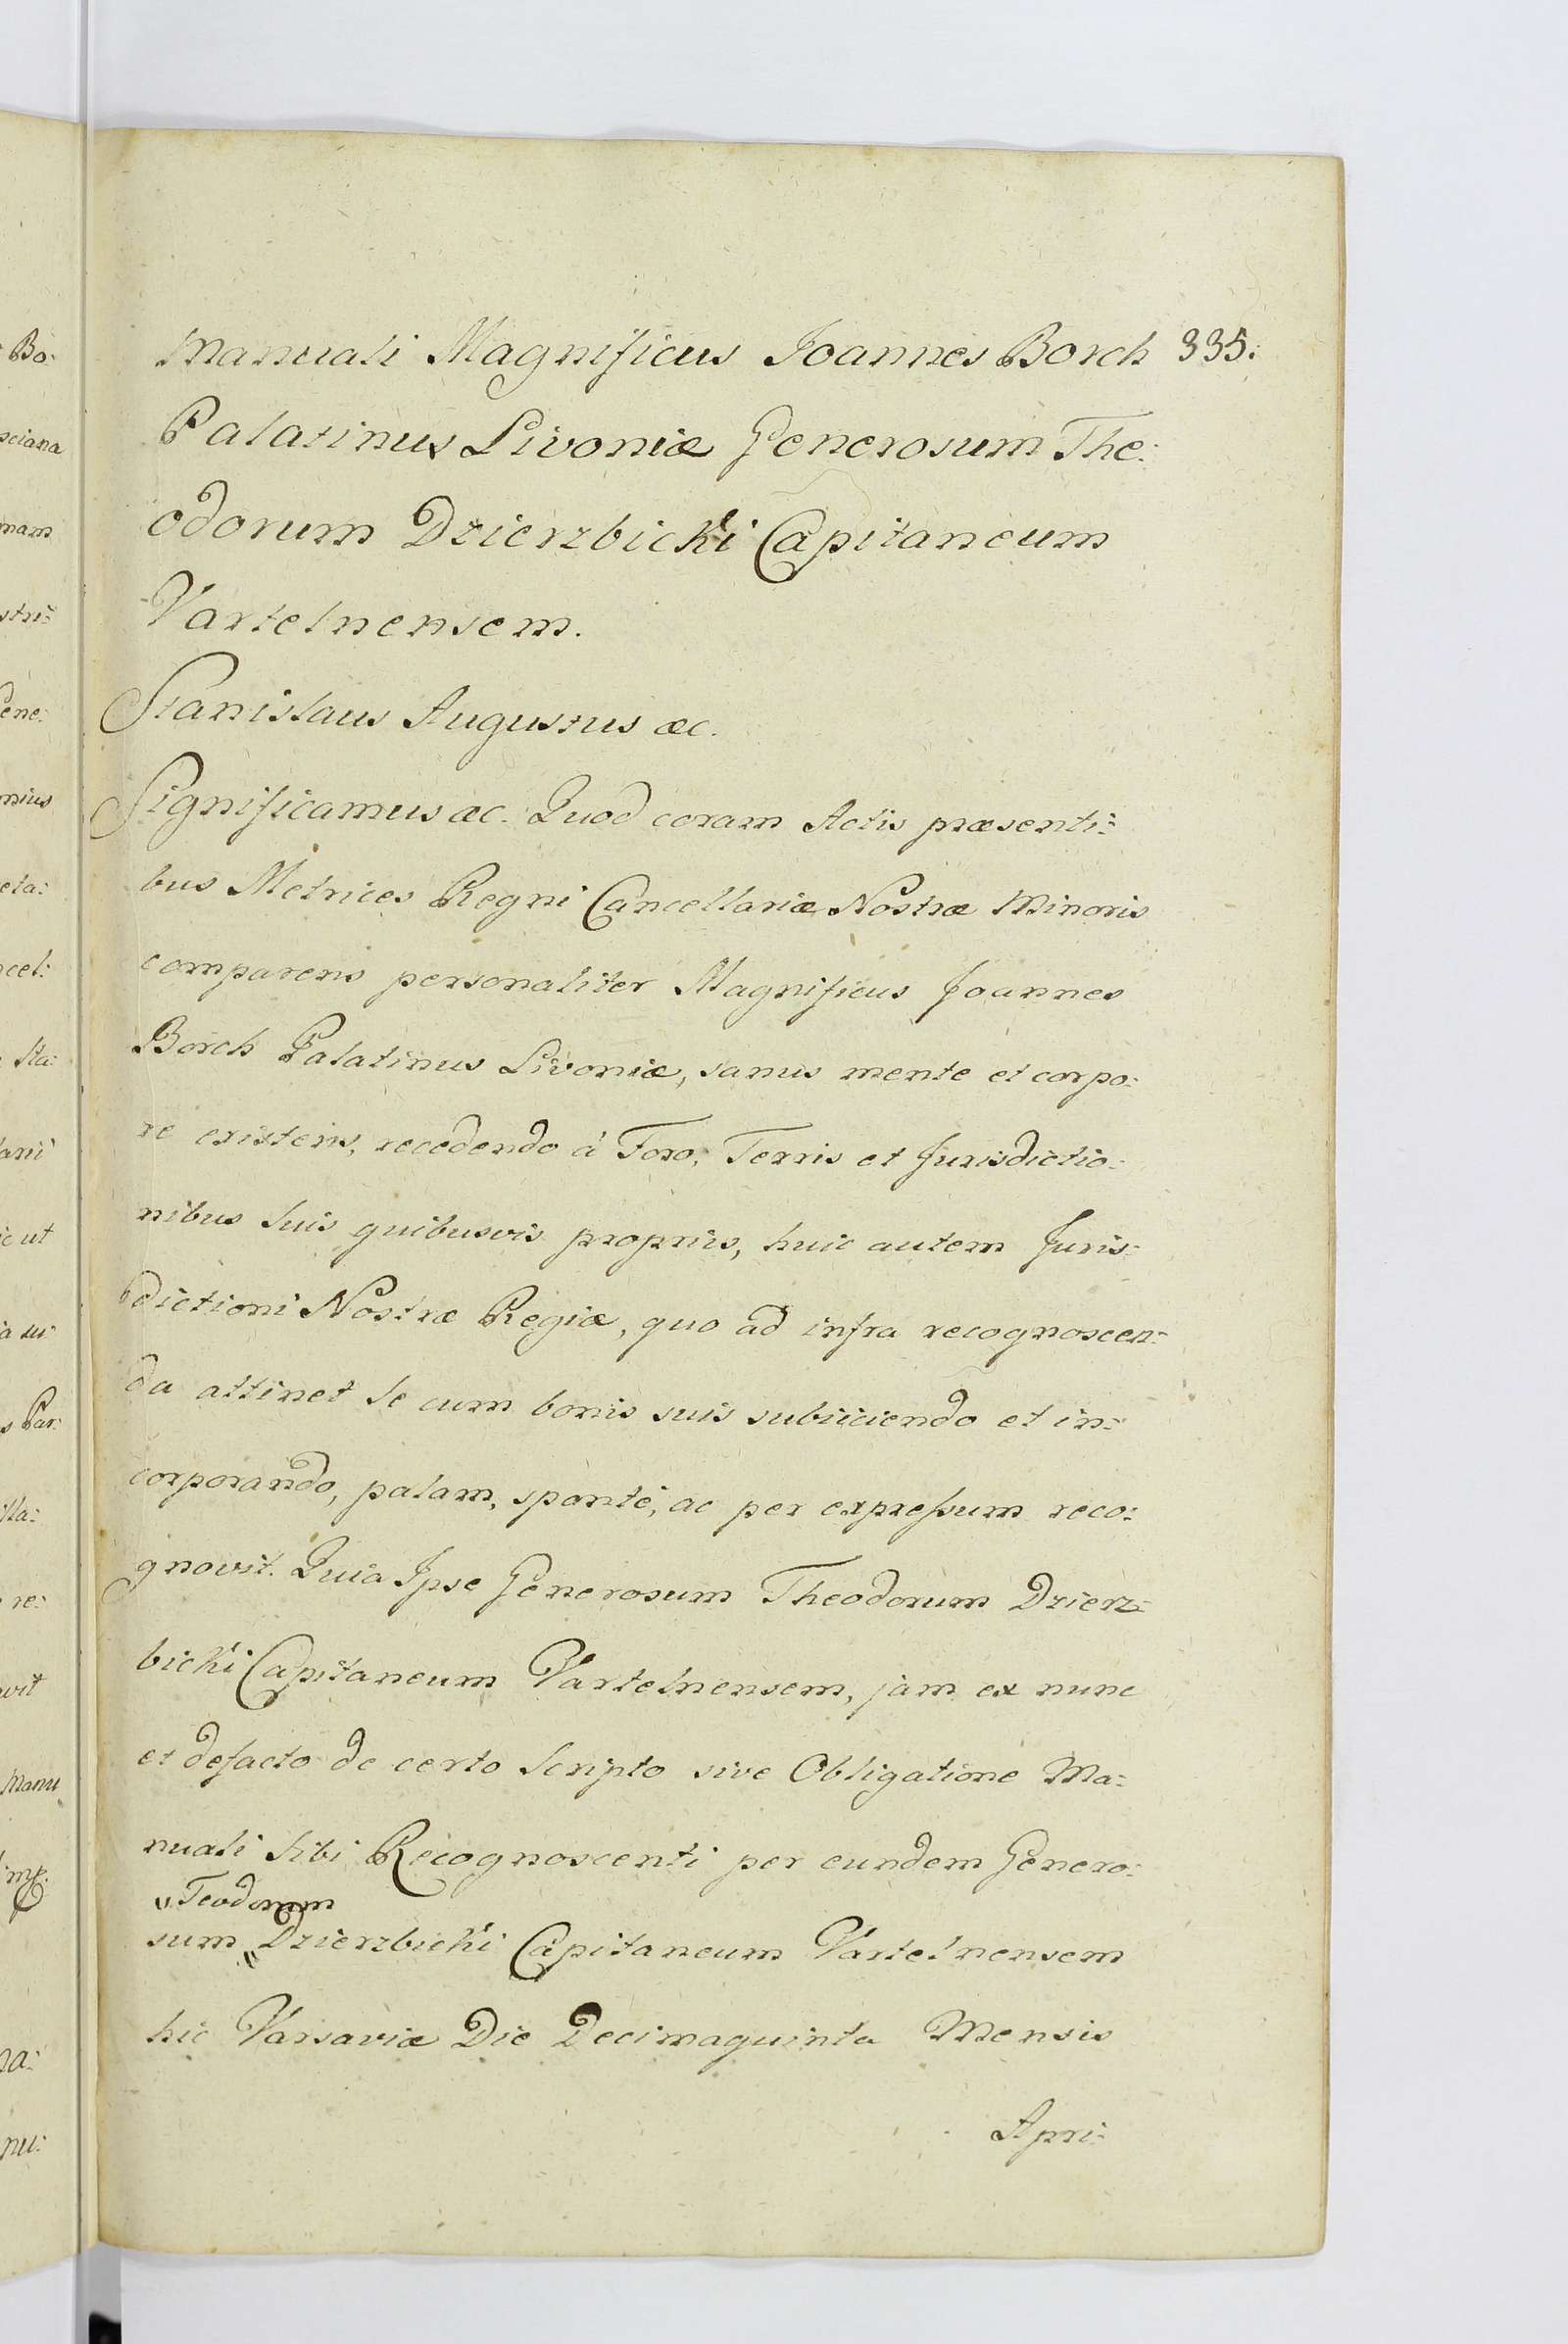 Manuali Magnificus Joannes Borch 335.
Palatinus Livoniæ Generosum The:
odorum Dzierzbicki Capitaneum
Vartelnensem.
Stanislaus Augustus æc.
Significamus æc. Quod coram Actis præsenti:
bus Metrices Regni Cancellariæ Nostræ Minoris
comparens personaliter Magnificus Joannes
Borch Palatinus Livoniæ, sanus mente et corpo:
re existens, recedendo à Foro, Terris et Jurisdictio:
nibus suis quibusvis propriis, huic autem Juris:
dictioni Nostræ Regiæ, quo ad infra recognoscen:
da attinet se cum bonis suis subiiciendo et in:
corporando, palam, sponté, ac per expressum reco:
gnovit. Quia Ipse Generosum Theodorum Dzierz:
bicki Capitaneum Vartelnensem, jam ex nunc
et defacto de certo Scripto sive Obligatione Ma:
nuali sibi Recognoscenti per eundem Genero:
"Teodorum
sum " Dzierzbicki Capitaneum Vartelnensem
hic Varsaviæ Die Decimaquinta Mensis
Apri:
Bo:
sciana
mam
stri:
Gene:
nius
eta:
ncel:
Sta:
ic ut
ia su:
s Par:
illa:
re:
avit
Manu
na:
pu: